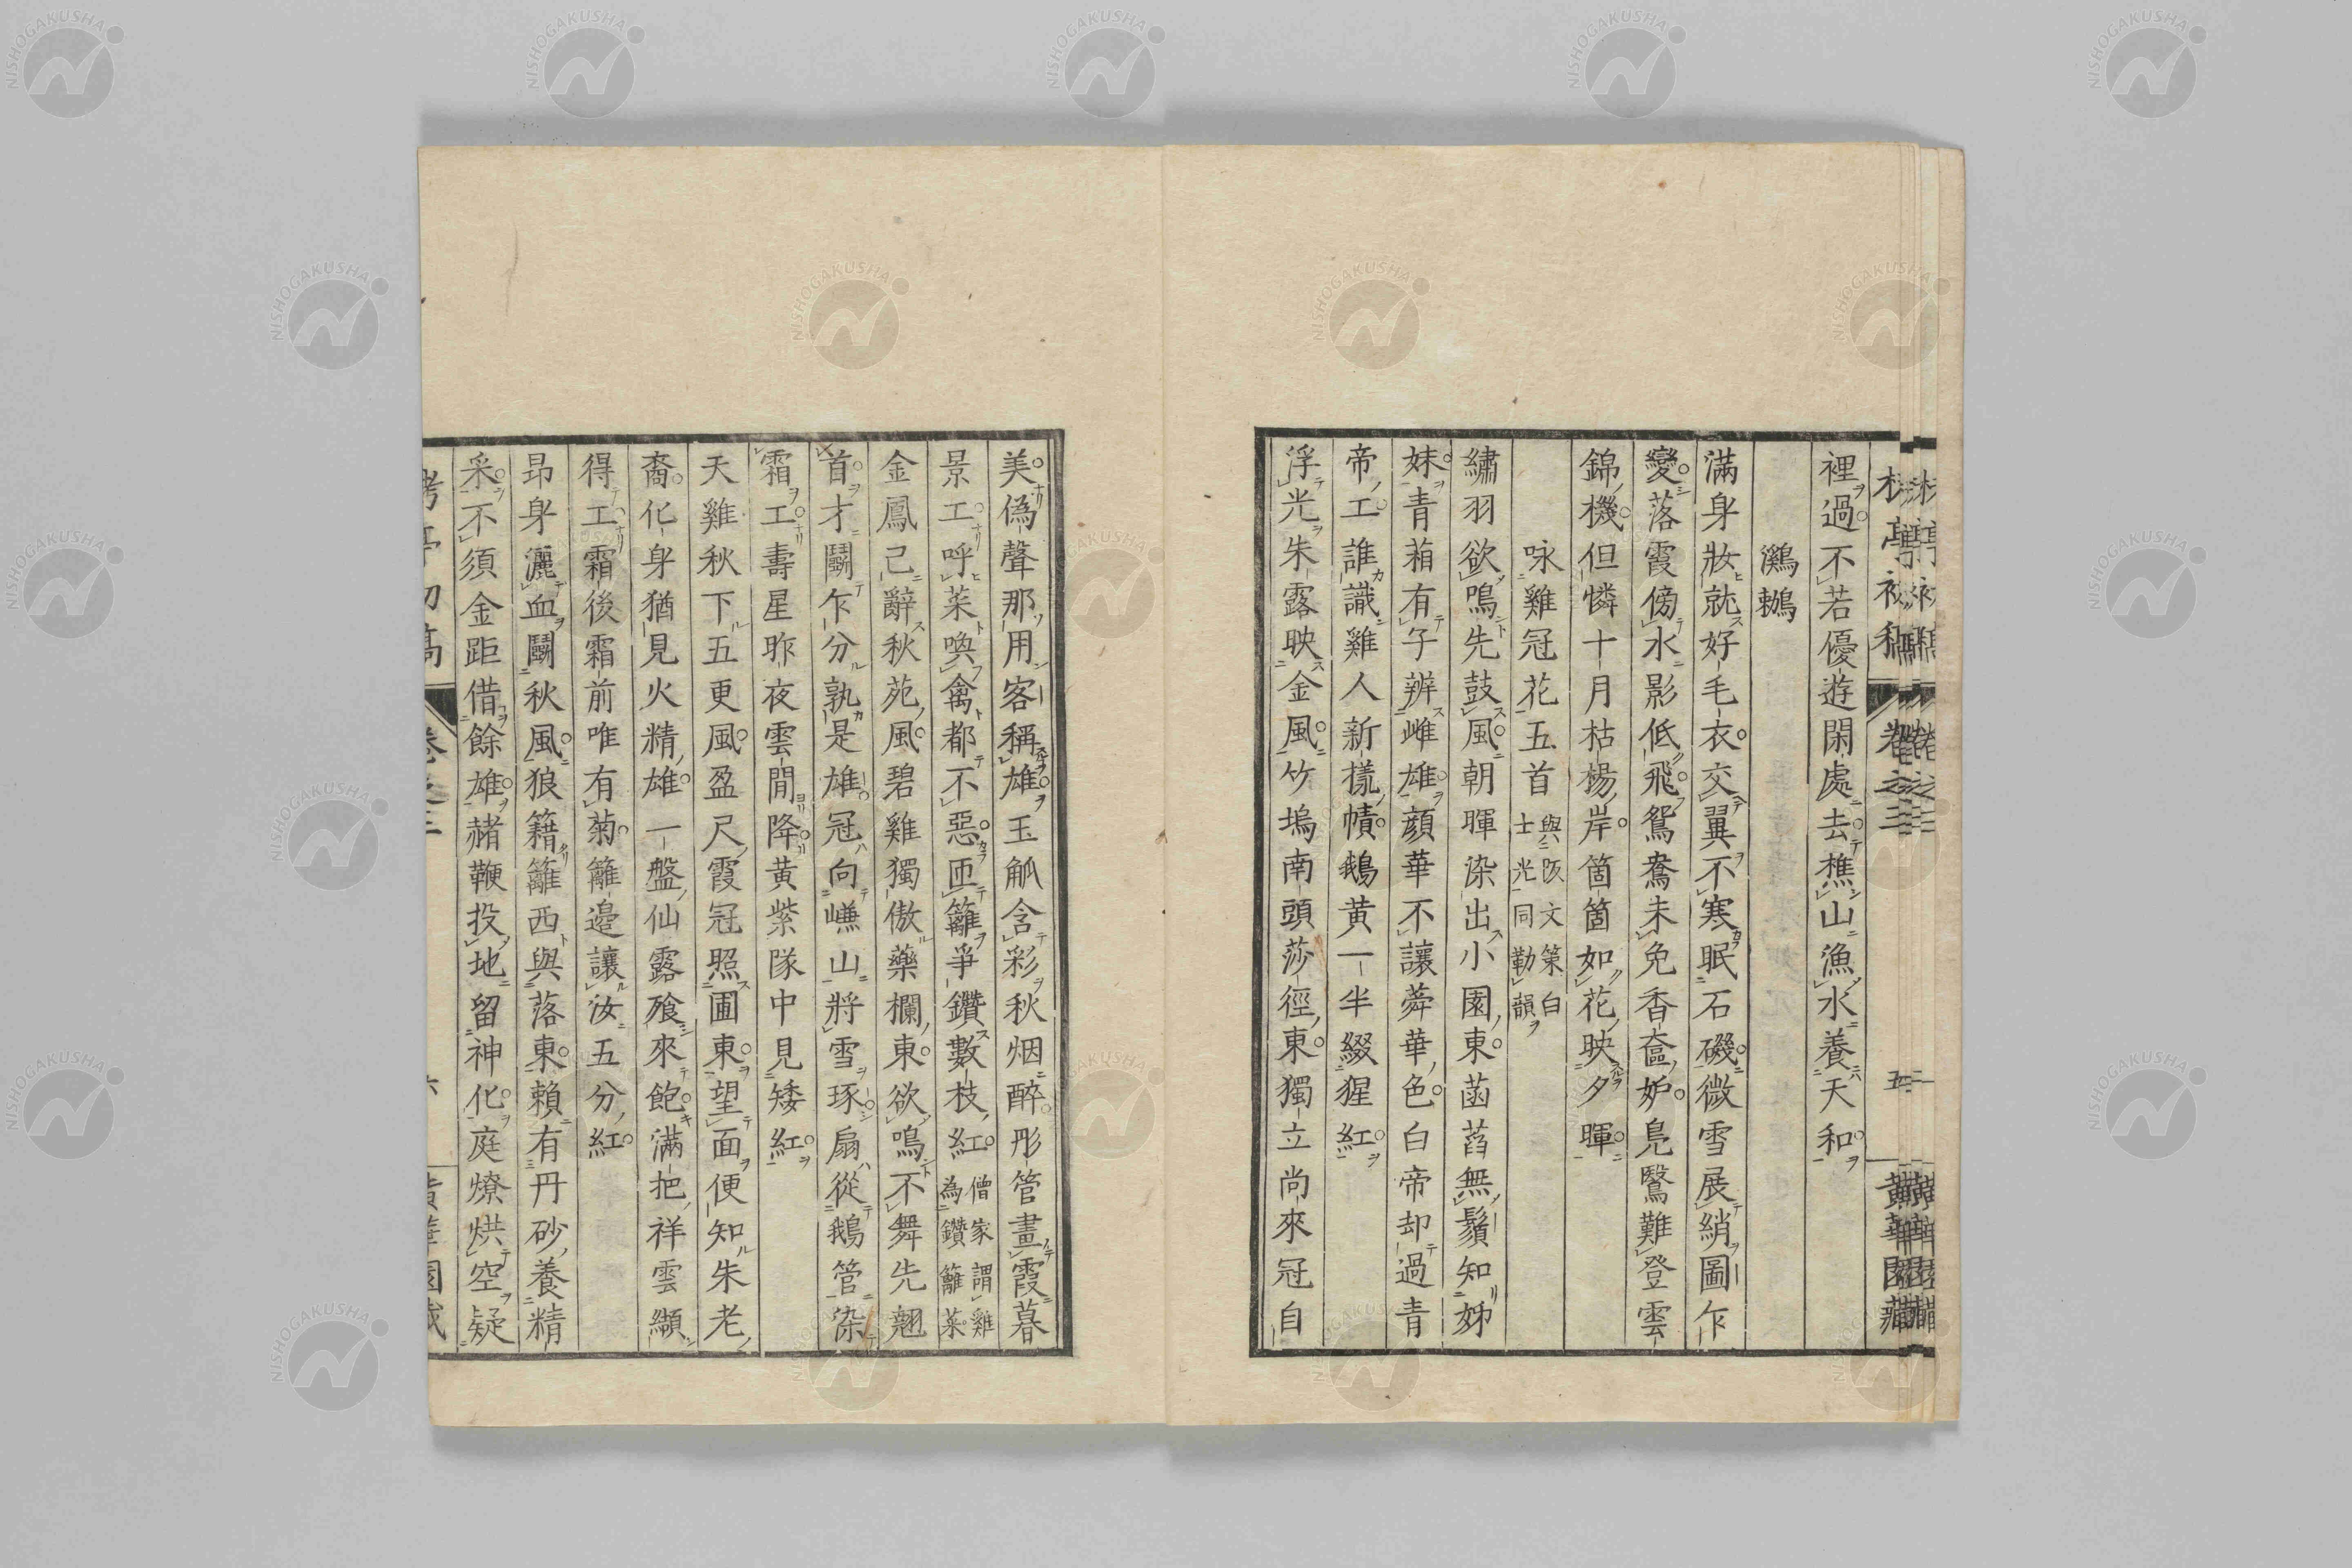 裡過不若優遊閑處去樵山漁水養天和
鸂鶒
滿身妝就好毛衣交翼不寒眠石磯微雪展綃圖乍
變落霞傍水影低飛鴛鴦未免香奩妒鳧鷖難登雲
錦機但憐十月枯楊岸箇箇如花映夕暉
咏雞冠花五首 與阪文策白士光同勒韻
繡羽欲鳴先鼓風朝暉染出小園東菡萏無鬚知姊
妹青葙有子辨雌雄顏華不讓蕣華色白帝却過青
帝工誰識雞人新樣幘鵝黃一半綴猩紅
浮光朱露映金風竹塢南頭莎徑東獨立尚來冠自
美偽聲那用客稱雄玉觚含彩秋烟醉彤管畫霞暮
景工呼菜喚禽都不惡匝籬爭鑽數枝紅 僧家謂雞為鑽籬菜
金鳳已辭秋苑風碧雞獨傲藥欄東欲鳴不舞先翹
首才鬪乍分孰是雄冠向巇山將雪琢扇從鵝管染
霜工壽星昨夜雲間降黃紫隊中見矮紅
天雞秋下五更風盈尺霞冠照圃東望面便知朱老
裔化身猶見火精雄一盤仙露飱來飽滿把祥雲纈
得工霜後霜前唯有菊籬邊讓汝五分紅
昂身灑血鬪秋風狼籍籬西與落東賴有丹砂養精
采不須金距借餘雄赭鞭投地留神化庭燎烘空疑